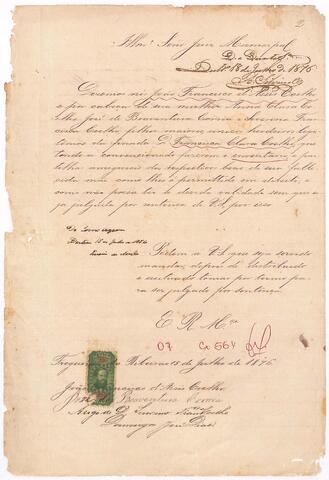 2
Illmo Snr Juiz Municipal
D. a Duarte
18 de Julho de 1876
Dizemos nós João Francisco d'Assis Coelho
e por cabeça de sua mulher Anna Clara Co
elho, José de Boaventura Correia e Severina Francis
ca Coelho, filhos maiores, unicos herdeiros legi
timos da finada D. Francisca Clara Coelho, que
tendo convencionado fazerem o inventario e par
tilha amigavel dos respectivos bens de seu falle
cida mãe como lhes é permittido em direito, e
como não possa ter a devida validade sem que s
eja julgada por sentença de V. S. por isso
Desterro 18 de Julho de 1876
Pedem a V. S. que seja servido
mandar, depois de distribuido
e autuado tomar por termo pa
ra ser julgado por sentença
E R Mce
07 Cx 564
Freguezia do Ribeirão 18 de Julho de 1876
João Francisco d'Assis Coelho
José de Boaventura Correa
Arogo de D.
Domingos José Dias